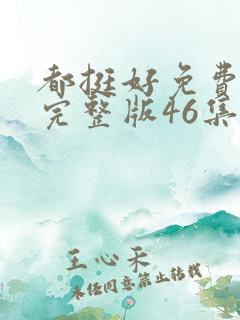 都挺好免费
完整版46集
王心禾
未经同意禁止转载